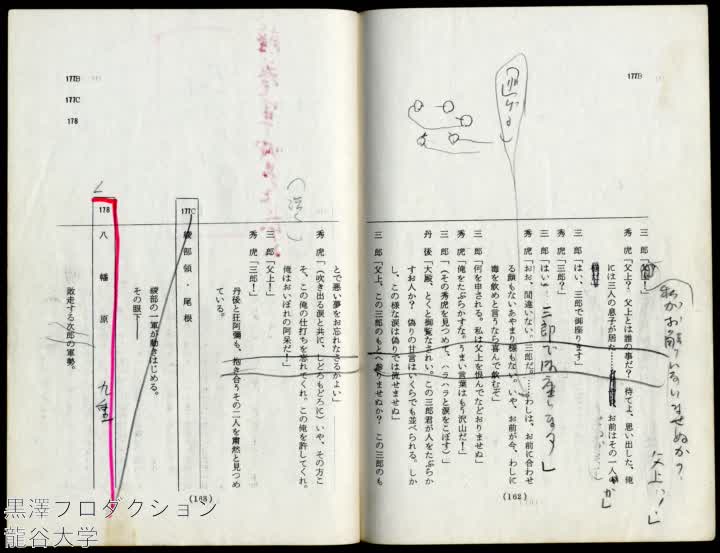 177B
逃げる
三郎「父上！」
秀虎「父上？　父上とは誰の事だ？　待てよ、思い出した、俺
には三人の息子が居た……お前はその一人か」
三郎「はい、三郎で御座ります」
秀虎「三郎？」
三郎「はい、三郎で御座りまする」
秀虎「おお、間違いない。三郎だ……わしは、お前に合わせ
る顔もない。あやまり様もない。いや、お前が今、わしに
毒を飲めと言うなら喜んで飲むぞ」
三郎「何を申される。私は父上を恨んでなどおりませぬ」
秀虎「俺をたぶらかすな。うまい言葉はもう沢山だ！」
三郎（その秀虎を見つめて、ハラハラと涙をこぼす）
丹後「大殿、とくと御覧なされい。この三郎君が人をたぶらか
すお人か？　偽りの甘言はいくらでも並べられる。しか
し、この様な涙は偽りでは流せませぬ」
三郎「父上、この三郎のもとへ参りませぬか？　この三郎のも
(162)
177B
177C
178
とで悪い夢をお忘れなさるがよい」
秀虎「（吹き出る涙と共に、しどろもどろに）いや、その方こ
そ、この俺の仕打ちを忘れてくれ。この俺を許してくれ。
俺はおいぼれの阿呆だ！」
三郎「父上！」
秀虎「三郎！」
丹後と狂阿彌も、抱き合うその二人を粛然と見つめ
ている。
177C　綾部領・尾根
綾部の一軍が動きはじめる。
その眼下——
178　八幡原
敗走する次郎の軍勢。
(163)
黒澤プロダクション
龍谷大学